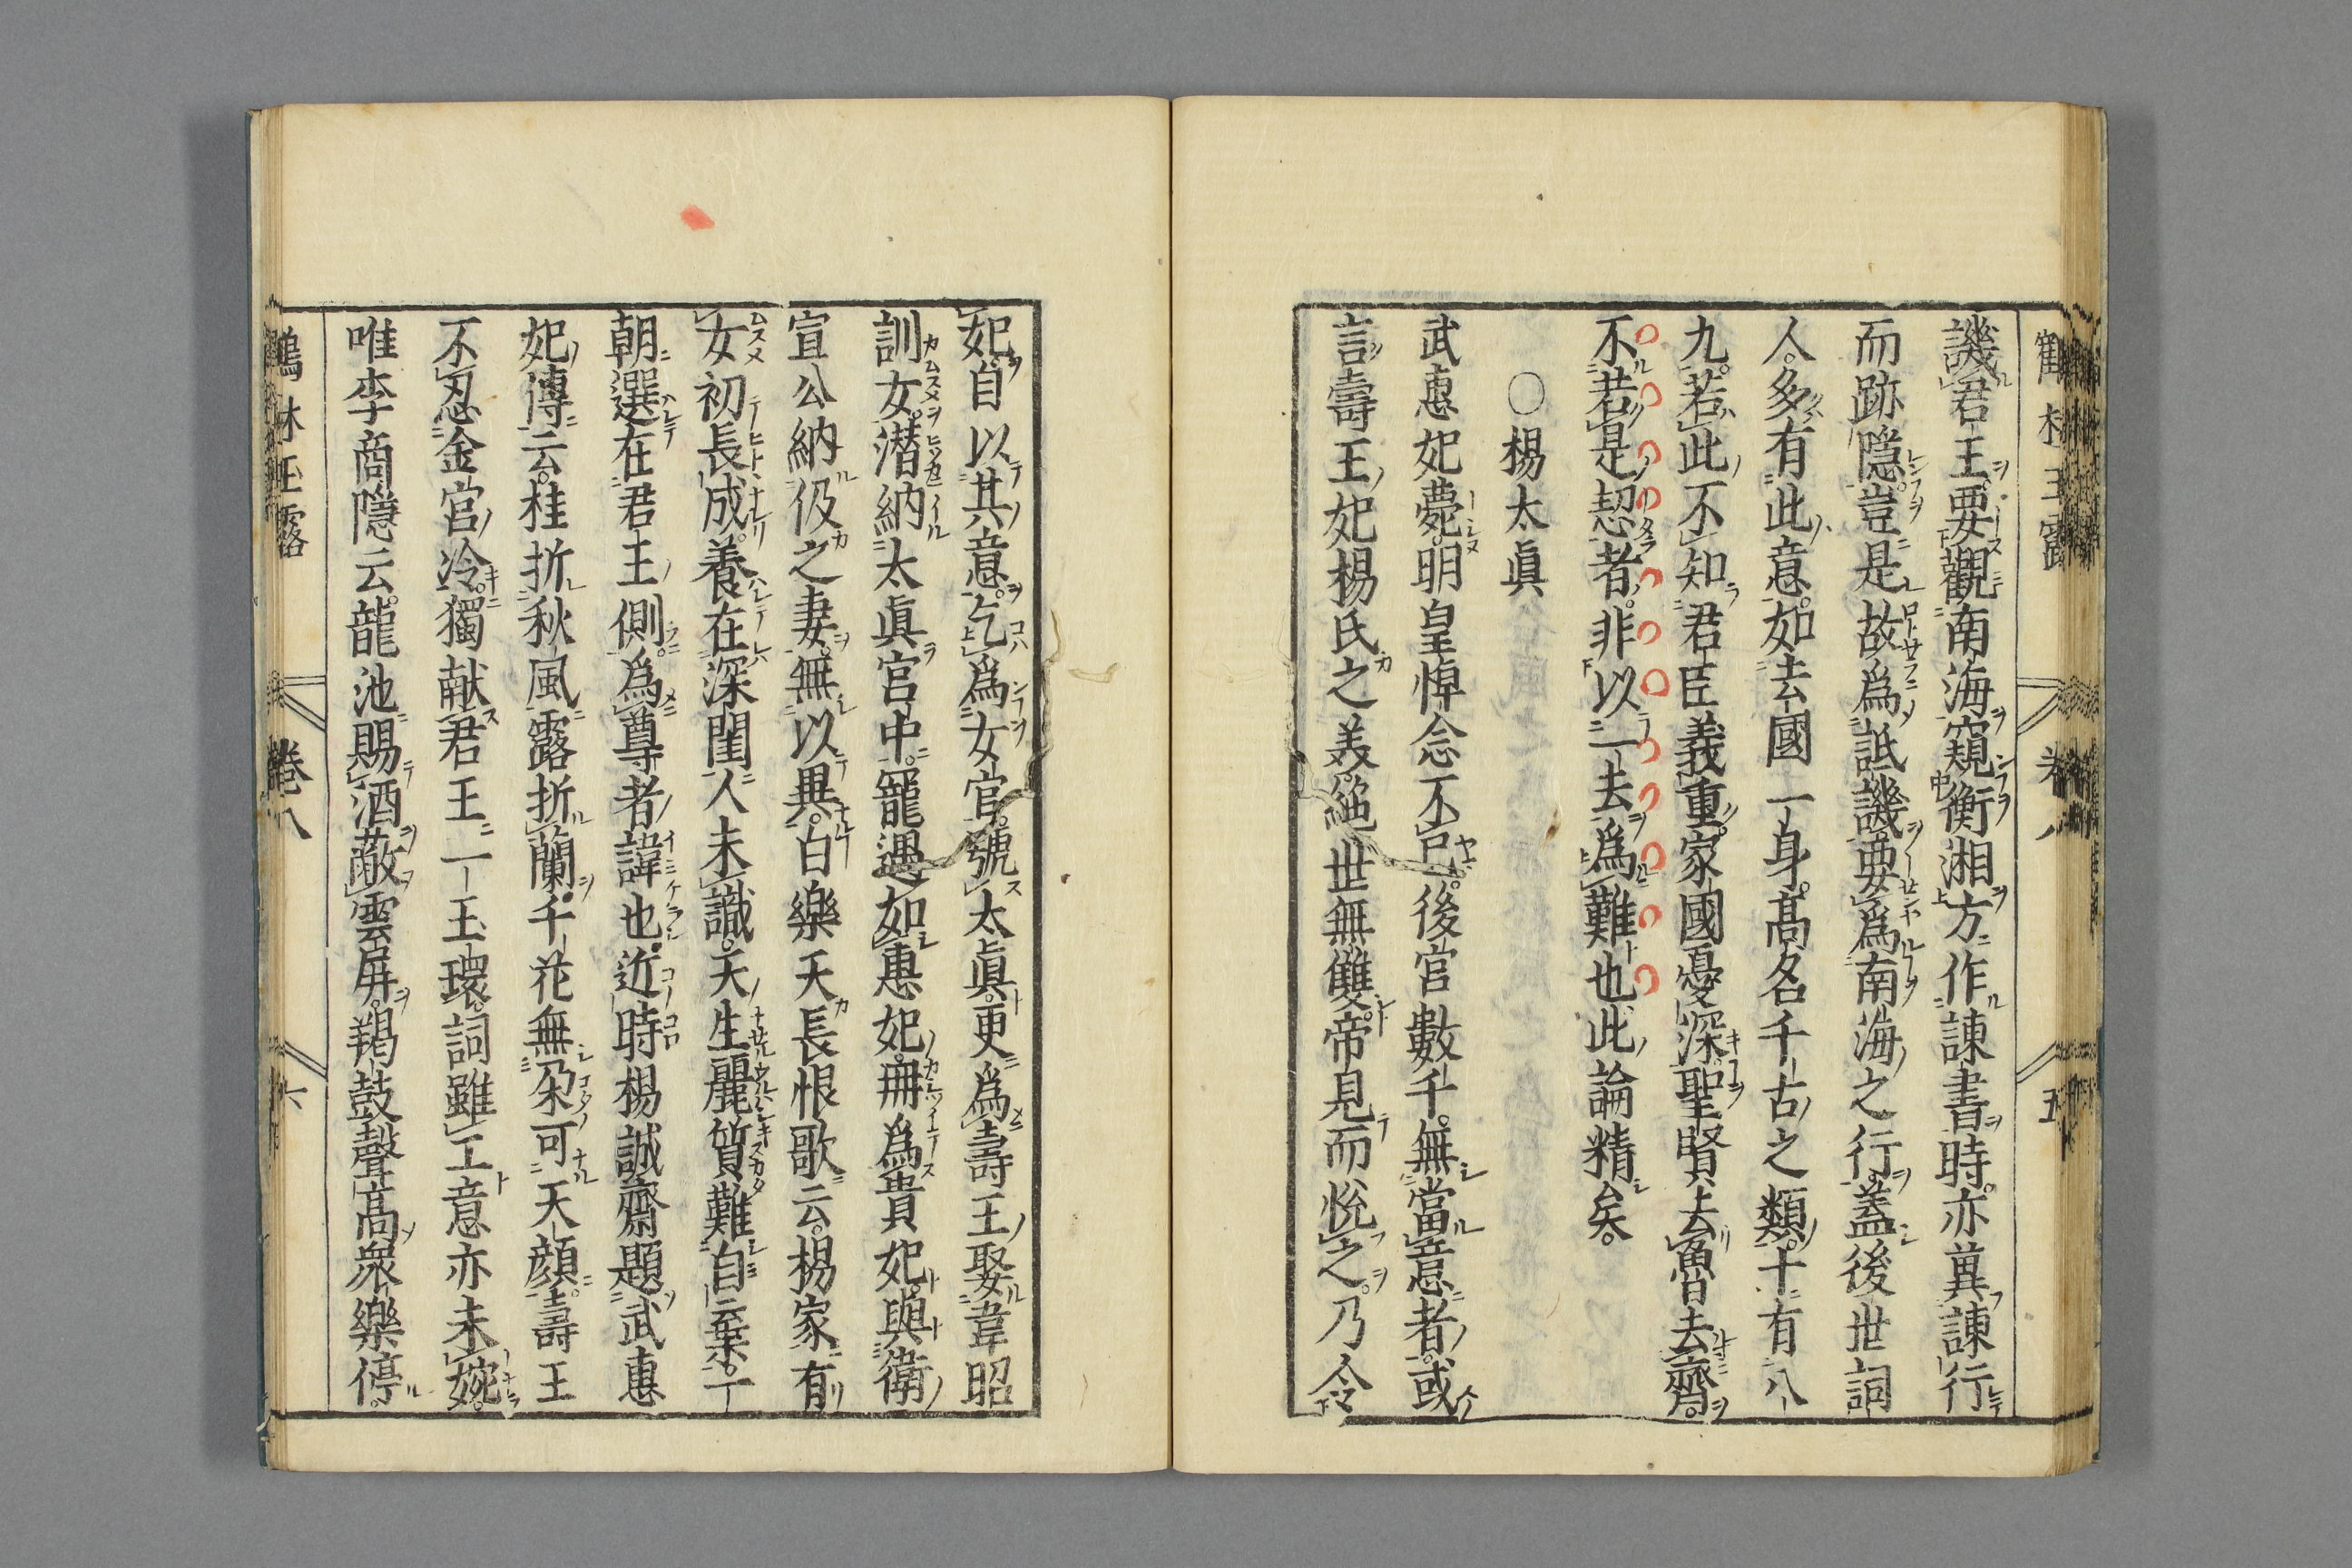 鶴林玉露　卷八　五
譏君王。要觀南海窺衡湘。方作諫書時。亦冀諫行
而跡隱。豈是故爲詆譏。要爲南海之行。蓋後世詞
人。多有此意。如去國一身。高名千古之類。十有八
九。若此不知君臣義重。家國憂深。聖賢去魯去齊。
不若是恝者。非以一去爲難也。此論精矣。
〇楊太眞
武惠妃薨。明皇悼念不已。後宮數千。無當意者。或
言壽王妃楊氏之美。絕世無雙。帝見而悅之。乃令
妃自以其意。乞爲女官。號太眞。更爲壽王娶韋昭
訓女。潛納太眞宮中。寵遇如惠妃。冊爲貴妃。與衛
宣公納伋之妻。無以異。白樂天長恨歌云。楊家有
女初長成。養在深閨人未識。天生麗質難自棄。一
朝選在君王側。爲尊者諱也。近時楊誠齋題武惠
妃傳云。桂折秋風露折蘭。千花無朶可天顏。壽王
不忍金宮冷。獨獻君王一玉環。詞雖工意亦未婉。
唯李商隱云。龍池賜酒敞雲屏。羯鼓聲高衆樂停。
鶴林玉露　卷八　六